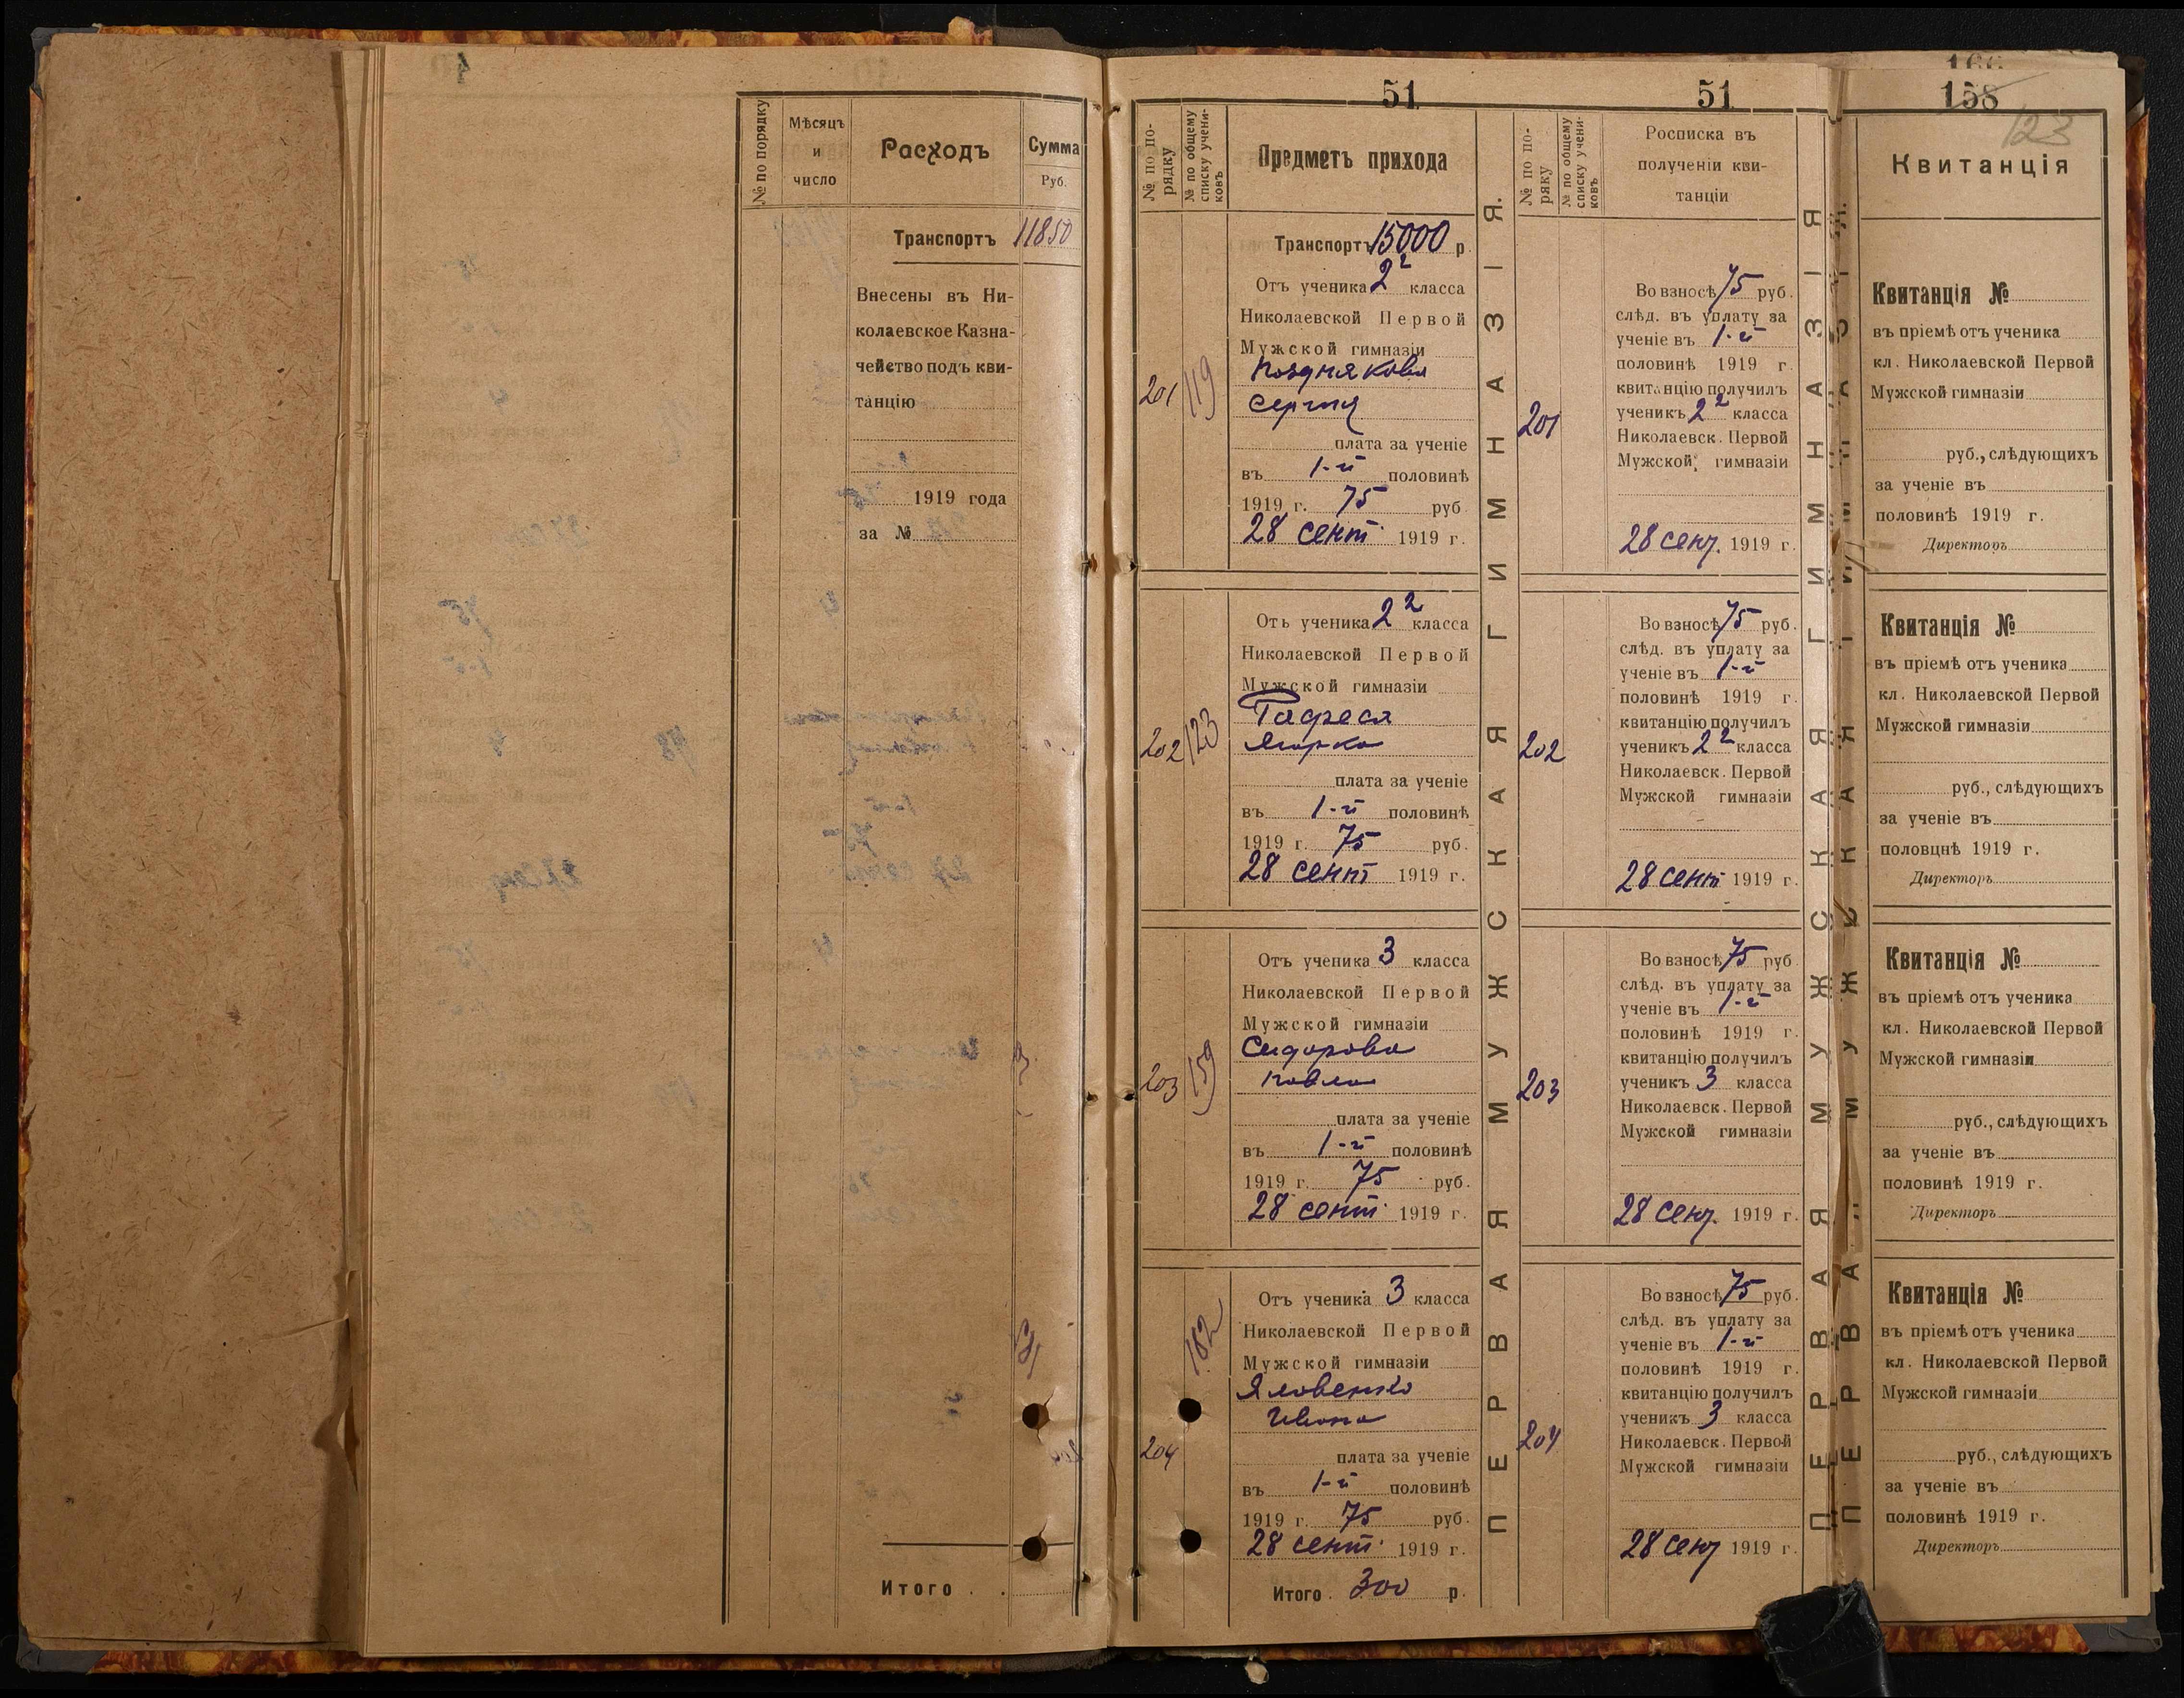 № по порядку
Мѣсяцъ
и
число
Расходъ
Сумма
Руб.
Транспортъ 11850
Внесены въ Ни-
колаевское Казна-
чейство подъ кви-
танцію
1919 года
за №
Итого . .
51
№ по по-
рядку
№ по общему
списку учени-
ковъ
Предметъ прихода
Транспортъ 15000 р
201
119
Отъ ученика 2² класса
Николаевской Первой
Мужской гимназіи
Позднякова
Сергея
плата за ученіе
въ 1-й половинѣ
1919 г. 75 руб
28 сент. 1919 г.
202
123
Отъ ученика 2² класса
Николаевской Первой
Мужской гимназіи
плата за ученіе
въ 1-й половинѣ
1919 г. 75 руб.
28 сент 1919 г.
203
159
Отъ ученика 3 класса
Николаевской Первой
Мужской гимназіи
Сидорова
Павла
плата за ученіе
въ 1-й половинѣ
1919 г. 75 руб.
28 сент. 1919 г.
204
182
Отъ ученика 3 класса
Николаевской Первой
Мужской гимназіи
Яловенко
Ивана
плата за ученіе
въ 1-й половинѣ
1919 г. 75 руб.
28 сент. 1919 г.
Итого . 300 р.
ПЕРВАЯ МУЖСКАЯ ГИМНАЗІЯ.
51
№ по по-
ряку
№ по общему
списку учени-
ковъ
Росписка въ
полученіи кви-
танціи
201
Во взносѣ 75 руб.
слѣд. въ уплату за
ученіе въ 1-й
половинѣ 1919 г.
квитанцію получилъ
ученикъ 2² класса
Николаевск. Первой
Мужской гимназіи
28 сен. 1919 г.
202
Во взносѣ 75 руб.
слѣд. въ уплату за
ученіе въ 1-й
половинѣ 1919 г.
квитанцію получилъ
ученикъ 2² класса
Николаевск. Первой
Мужской гимназіи
28 сент 1919 г.
203
Во взносѣ 75 руб
слѣд. въ уплату за
ученіе въ 1-й
половинѣ 1919 г.
квитанцію получилъ
ученикъ 3 класса
Николаевск. Первой
Мужской гимназіи
28 сен. 1919 г.
204
Во взносѣ 75 руб.
слѣд. въ уплату за
ученіе въ 1-й
половинѣ 1919 г.
квитанцію получилъ
ученикъ 3 класса
Николаевск. Первой
Мужской гимназіи
28 сен 1919 г.
ПЕРВАЯ МУЖСКАЯ ГИМНАЗІЯ
166
158
123
Квитанція
Квитанція №
въ пріемѣ отъ ученика
кл. Николаевской Первой
Мужской гимназіи
руб., слѣдующихъ
за ученіе въ
половинѣ 1919 г.
Директоръ
Квитанція №
въ пріемѣ отъ ученика
кл. Николаевской Первой
Мужской гимназіи
руб., слѣдующихъ
за ученіе въ
половцнѣ 1919 г.
Директоръ
Квитанція №
въ пріемѣ отъ ученика
кл. Николаевской Первой
Мужской гимназіи
руб., слѣдующихъ
за ученіе въ
половинѣ 1919 г.
Директоръ
Квитанція №
въ пріемѣ отъ ученика
кл. Николаевской Первой
Мужской гимназіи
руб., слѣдующихъ
за ученіе въ
половинѣ 1919 г.
Директоръ